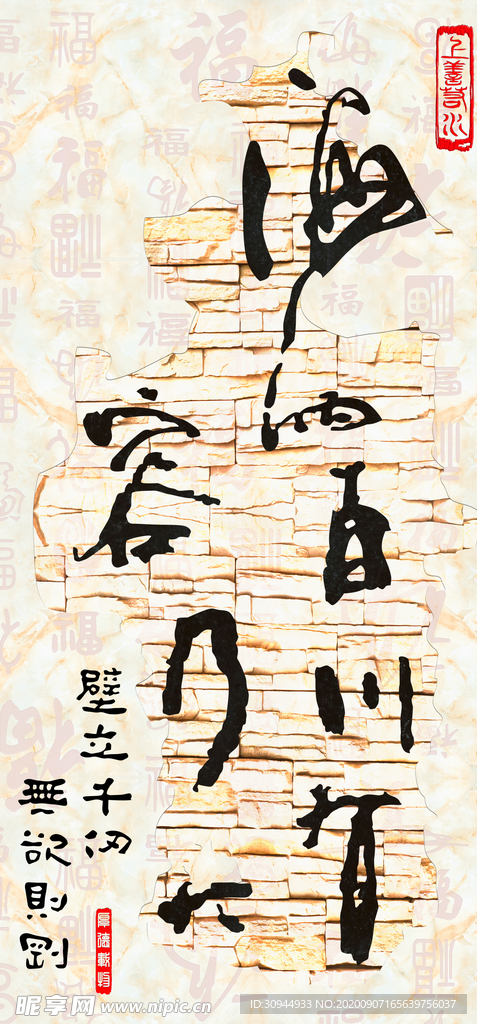 上善若水
海納百川有
容乃大
壁立千仞
無欲則剛
厚德載物
昵享网 www.nipic.cn
ID:30944933 NO:20200907165639756037